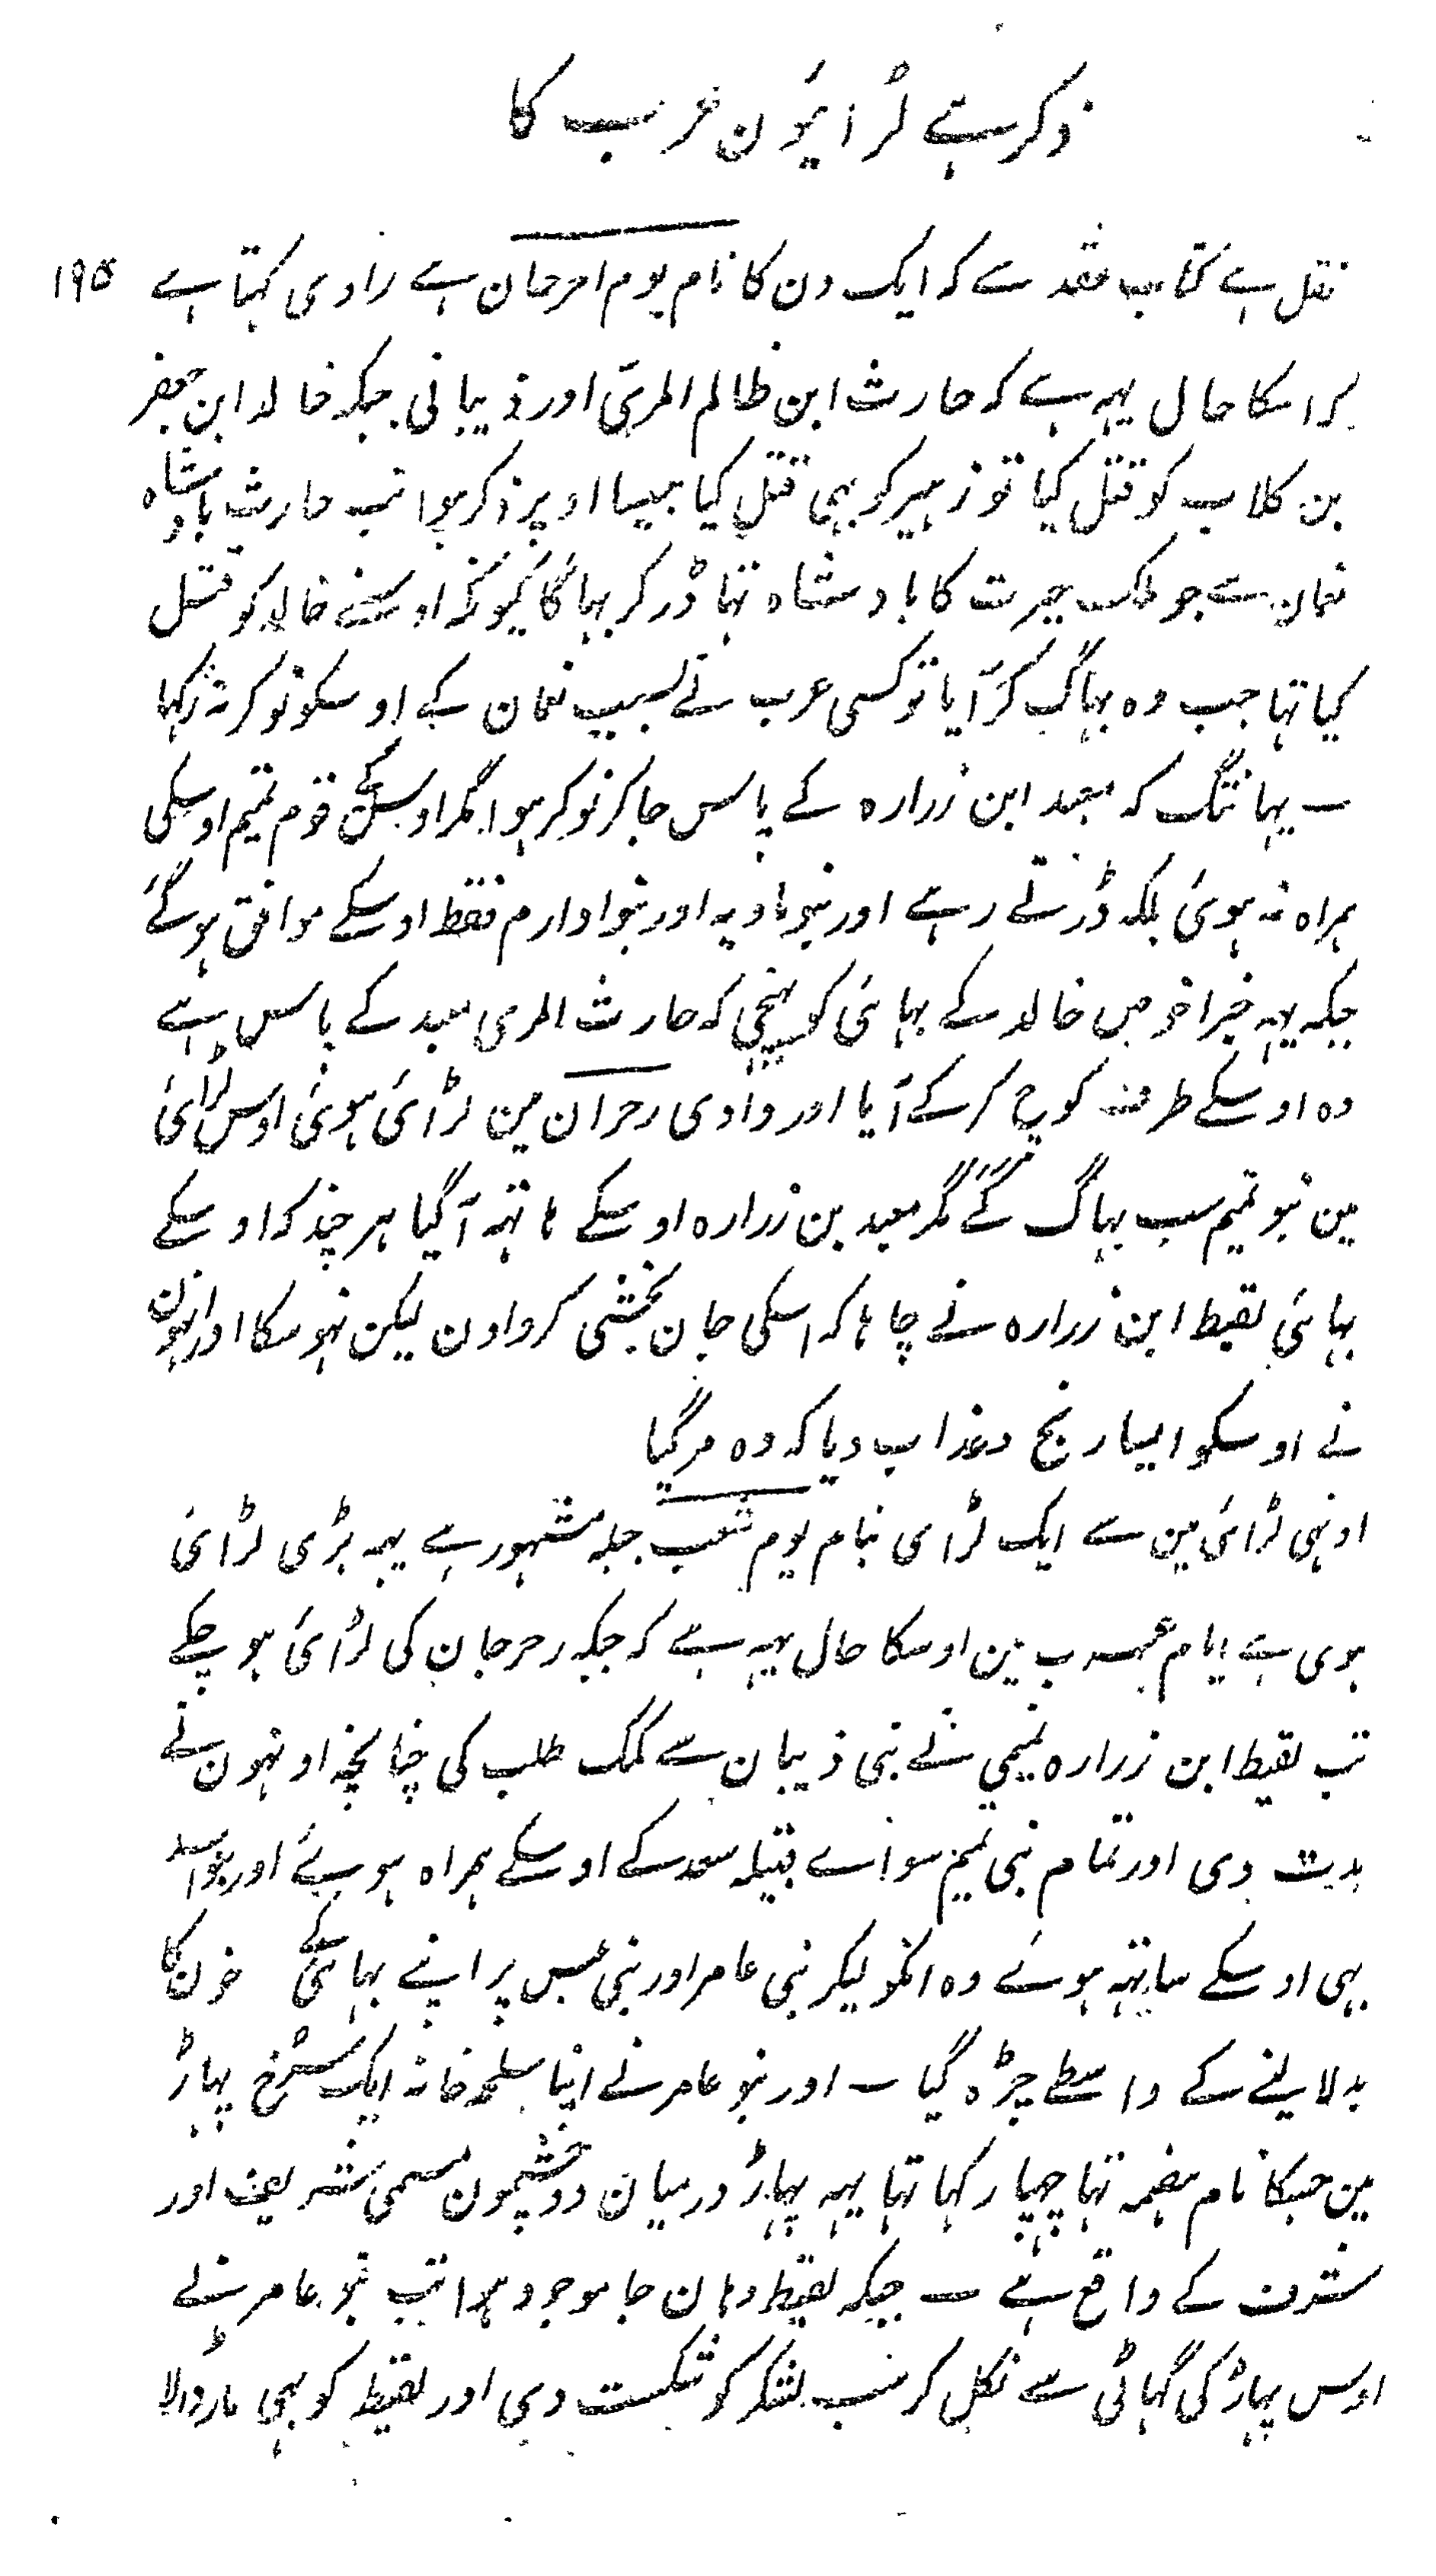 ذکر ہے لڑائیون عرب کا
نقل ہے کتاب عقد سے کہ ایک دن کا نام یوم امرحان ہے راوی کہتا ہے ۱۹۵
کہ اسکا حال یہہ ہے کہ حارث ابن ظالم المری اور ذیبانی جبکہ خالد ابن جعفر
بن کلاب کو قتل کیا تو زہیر کو بہی قتل کیا جیسا اوپر ذکر ہوا تب حارث بادشاہ
نعمان سے جو ملک حیرت کا بادشاہ تہا ڈر کر بہاگا کیونکہ اوسنے خالد کو قتل
کیا تہا جب وہ بہاگ کر آیا تو کسی عرب نے بسبب نعمان کے اوسکو نوکر نہ رکہا
ـ یہانتگ کہ معبد ابن زرارہ کے پاس جا کر نوکر ہوا مگر اوسکے قوم تمیم اوسکی
ہمراہ نہ ہوئی بلکہ ڈرتے رہے اور بنو ماویہ اور بنوا دارم فقط اوسکے موافق ہوگئے
جبکہ یہہ خبر اخوص خالد کے بہائی کو پہنچی کہ حارث المری معبد کے پاس ہے
وہ اوسکے طرف کوچ کر کے آیا اور وادی رحران مین لڑائی ہوئی اوس لڑائی
مین بنو تمیم سب بہاگ گئے مگر معبد بن زرارہ اوسکے ہاتہہ آگیا ہر چند کہ اوسکے
بہائی لقیط ابن زرارہ نے چاہا کہ اسکی جان بخشی کرواون لیکن نہو سکا اور انہون
نے اوسکو ایسا رنج وعذاب دیا کہ وہ مرگیا
اونہی لڑائی مین سے ایک لڑای بنام یوم شعب جبلہ مشہور ہے یہہ بڑی لڑائی
ہوی ہے ایام عرب مین اوسکا حال یہہ ہے کہ جبکہ رحرحان کی لڑائی ہو چکے
تب لقیط ابن زرارہ تمیمی نے بنی ذیبان سے کمک طلب کی چنانچہ اونہون نے
مدد دی اور تمام بنی تمیم سوائے قبیلہ سعد کے اوسکے ہمراہ ہوئے اور بنواسد
بہی اوسکے ساتہہ ہوئے وہ انکو لیکر بنی عامر اور بنی عبس پر اپنے بہائی کے خون کا
بدلا لینے کے واسطے چڑہ گیا ـ اور بنو عامر نے اپنا سلحہ خانہ ایک سرخ پہاڑ
مین جسکا نام ہضمہ تہا چہپا رکہا تہا یہہ پہاڑ درمیان دو چشمون مسمی شریف اور
شرف کے واقع ہے ـ جبکہ لقیط وہان جا موجود ہوا تب بنو عامر نے
اوس پہاڑ کی گہاٹی سے نکل کر سب لشکر کو شکست دی اور لقیط کو بہی مار ڈالا